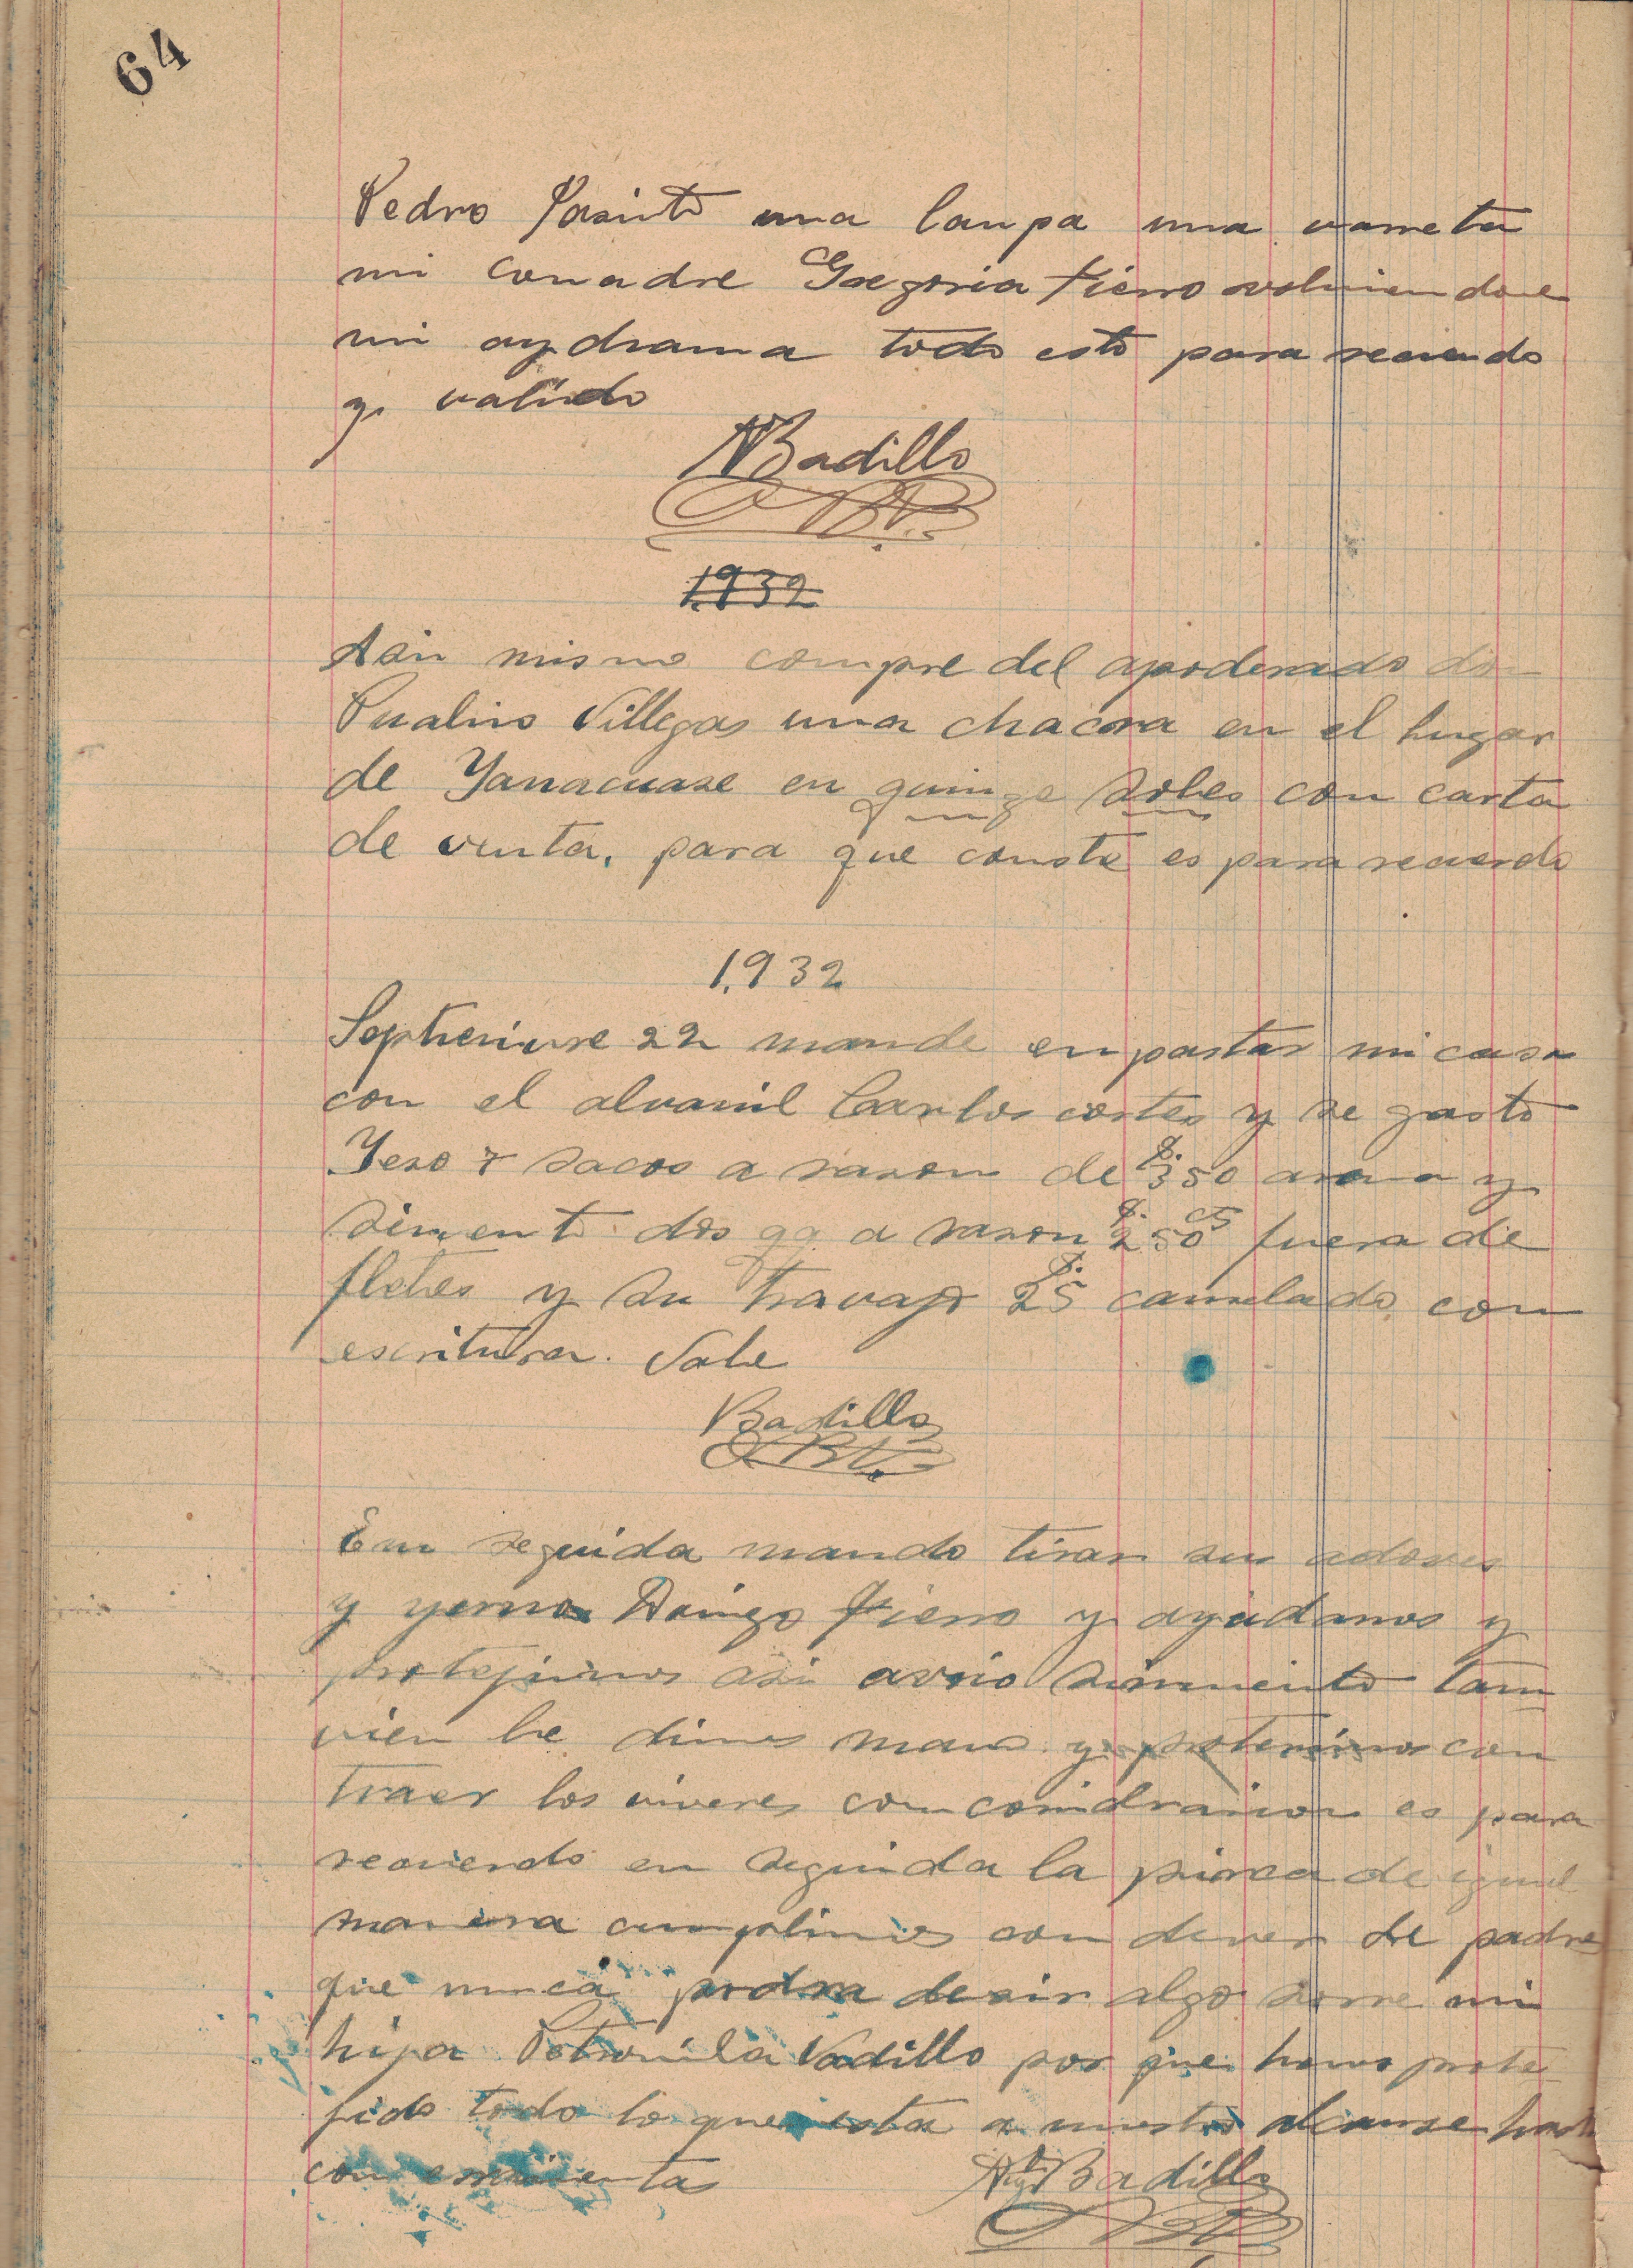 64
Pedro Jasinto una lanpa una varreta
mi comadre Gregoria Fierro volviendome
mi aydrama todo esto para recuerdo
y valido
NBadillo
1932
Asin mismo compre del apoderado don
Pualino Villegas una chacra en el lugar
de Yanacuase en quinze soles con carta
de venta, para que conste es para recuerdo
1.932
Septienvre 22 mande enpastar mi casa
con el alvanil Carlos cortes y se gasto
Yeso 7 sacos a rason de $. 350 arova y
simento dos qq a rason $. 250 cts fuera de
fletes y su travajo $. 25 canselado con
escritura. Vale
Badillo
En seguida mando tirar sus adoves
y yerno Domigo Fierro y ayudamos y
protejimos asi avrio simiento tam
vien le dimos mano y protenimos con
traer los viveres con considrasion es para
recuerdo en seguida la pirca de igual
manera cumplimos con dever de padre
que nunca podra desir algo sovre mi
hija Petronila Vadillo por que hemos prote
jido todo lo que esta a nuestro alcanse hasta
con erramienta
Badillo